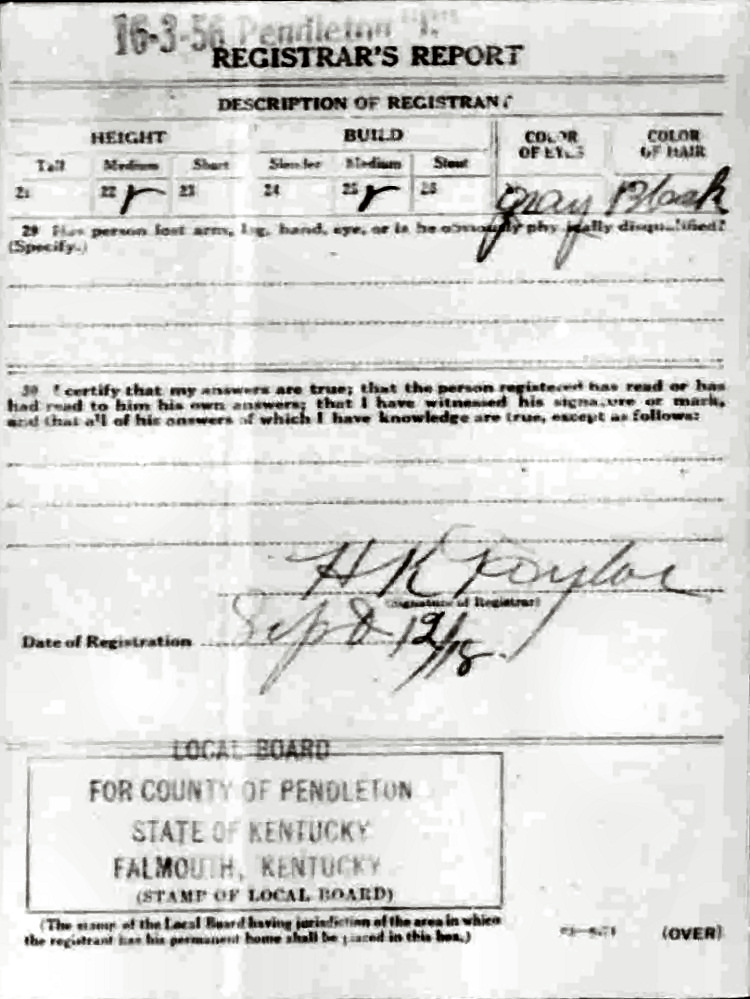 16-3-56 Pendleton
REGISTRAR'S REPORT
DESCRIPTION OF REGISTRANT
HEIGHT BUILD COLOR OF EYES COLOR OF HAIR
Tall Medium Short Slender Medium Stout
21 22 23 24 25 26 gray Black
29 Has person lost arm, leg, hand, eye, or is he obviously physically disqualified?
(Specify.)
30 I certify that my answers are true; that the person registered has read or has
had read to him his own answers; that I have witnessed his signature or mark,
and that all of his answers of which I have knowledge are true, except as follows:
H K Taylor
(Signature of Registrar)
Date of Registration Sept 12/18
LOCAL BOARD
FOR COUNTY OF PENDLETON
STATE OF KENTUCKY
FALMOUTH, KENTUCKY
(STAMP OF LOCAL BOARD)
(The stamp of the Local Board having jurisdiction of the area in which
the registrant has his permanent home shall be placed in this box.)
(OVER)